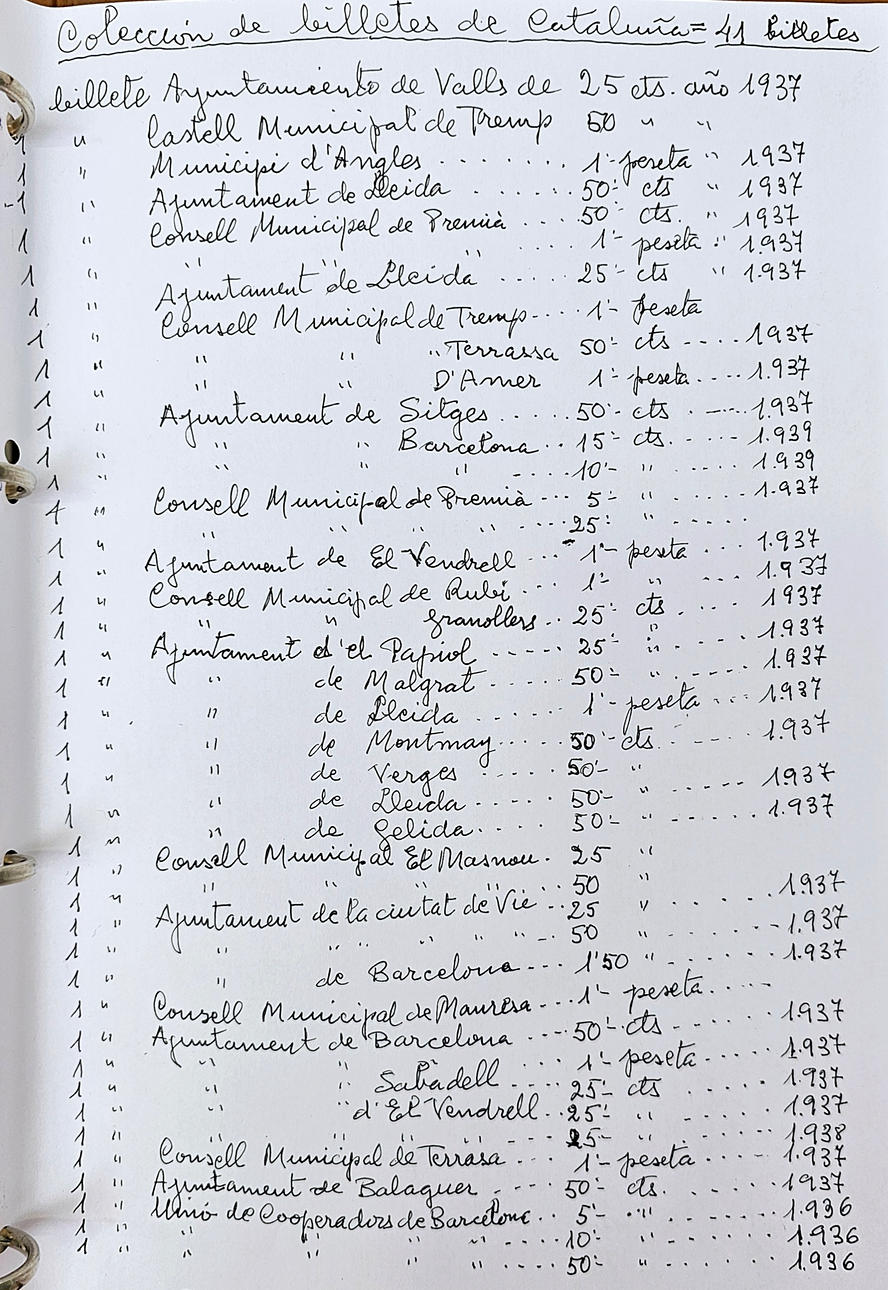 Colección de billetes de Cataluña = 41 billetes
billete Ayuntamiento de Valls de 25 cts. año 1937
1 " Castell Municipal de Tremp 50 " "
1 " Municipi d'Angles ....... 1'- peseta " 1937
1 " Ajuntament de Lleida ...... 50'- cts " 1937
1 " Consell Municipal de Premià ... 50'- cts. " 1937
1 " " " " .... 1'- peseta " 1.937
1 " Ajuntament de Lleida ..... 25'- cts " 1.937
1 " Consell Municipal de Tremp.... 1'- peseta
1 " " " " Terrassa 50'- cts .... 1.937
1 " " " D'Amer 1'- peseta .... 1.937
1 " Ajuntament de Sitges ..... 50'- cts ..... 1.937
1 " " " Barcelona .. 15'- cts. ..... 1.939
1 " " " " .... 10'- " ..... 1.939
4 " Consell Municipal de Premià ... 5'- " ...... 1.937
" " " " .... 25'- " ......
1 " Ajuntament de El Vendrell ... 1'- peseta ... 1.937
1 " Consell Municipal de Rubi ... 1'- " ..... 1.937
1 " " " Granollers .. 25'- cts ..... 1937
1 " Ajuntament d'el Papiol ..... 25'- " ..... 1.937
1 " " de Malgrat ..... 50'- " ...... 1.937
1 " " de Lleida ..... 1'- peseta .... 1.937
1 " " de Montmay ..... 50'- cts. ..... 1.937
1 " " de Verges ..... 50'- "
1 " " de Lleida ..... 50'- " ...... 1937
1 " " de Gelida ..... 50'- " ...... 1.937
1 " Consell Municipal El Masnou. 25 "
1 " " " " .. 50 " ..... 1.937
1 " Ajuntament de la ciutat de Vic .. 25 "
1 " " " " " .. 50 " ..... 1.937
1 " " de Barcelona ... 1'50 " ..... 1.937
1 " Consell Municipal de Manresa ... 1'- peseta .....
1 " Ajuntament de Barcelona ... 50'- cts ...... 1.937
1 " " " " 1'- peseta .... 1.937
1 " " " Sabadell .... 25'- cts ..... 1.937
1 " " " d'El Vendrell .. 25'- " ...... 1937
1 " " " " .... 25'- " ...... 1.938
1 " Consell Municipal de Terrasa ... 1'- peseta .... 1.937
1 " Ajuntament de Balaguer ... 50'- cts. ...... 1937
1 " Unió de Cooperadors de Barcelona .. 5'- " ..... 1.936
1 " " " " .... 10'- " ...... 1.936
" " .... 50'- " ...... 1.936